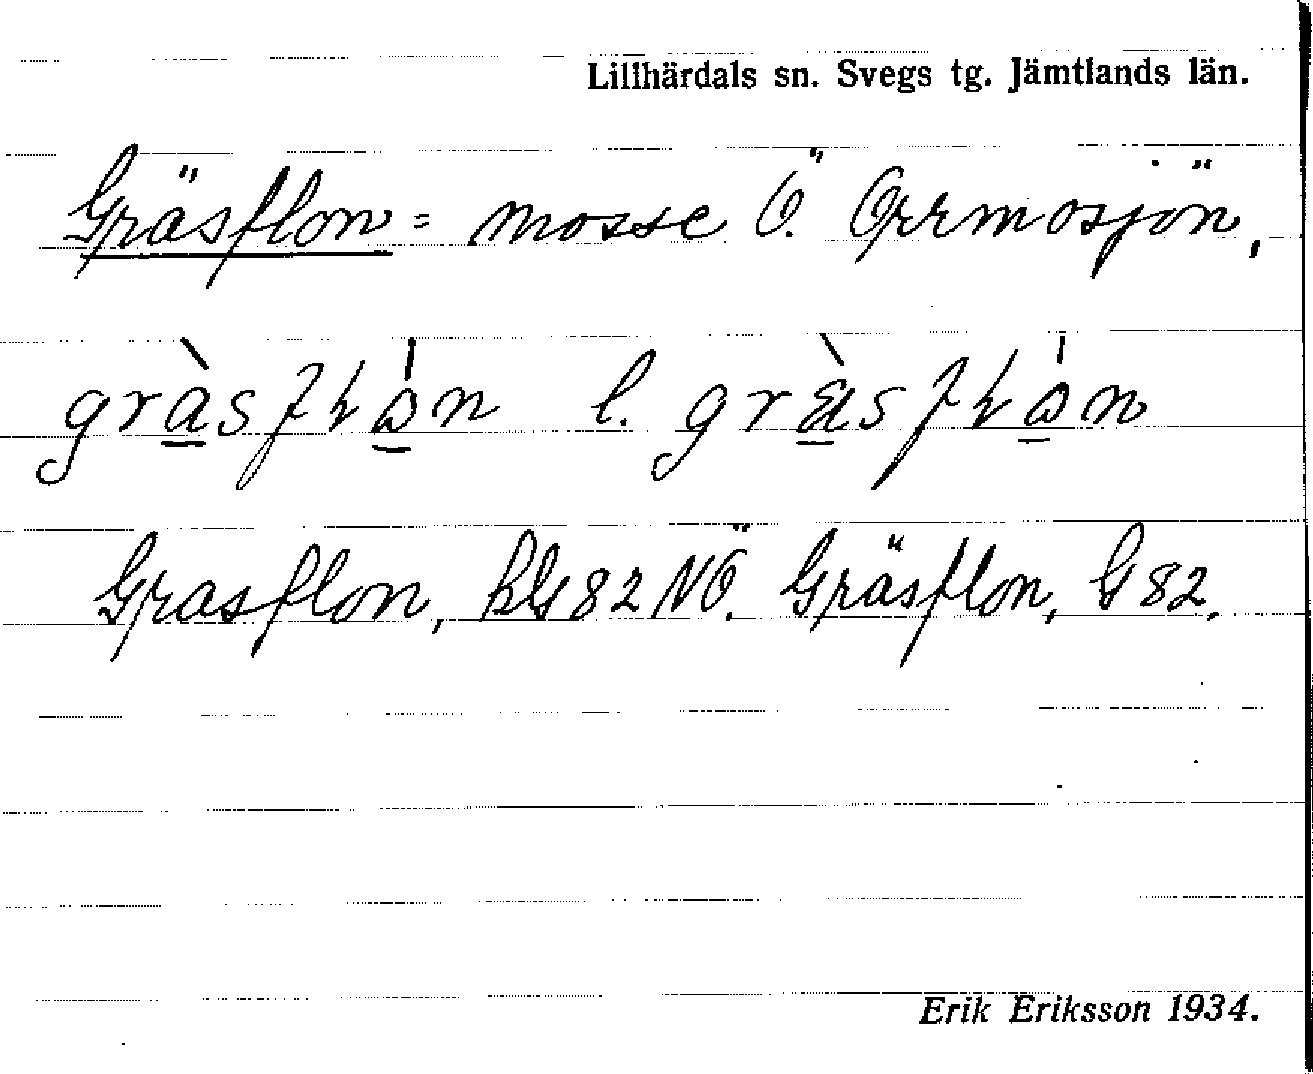 Lillhärdals sn. Svegs tg. Jämtlands län.
Gräsflon = mosse Ö. Orrmosjön,
l.
Grasflon, hG82NÖ. Gräsflon, G82.
Erik Eriksson 1934.